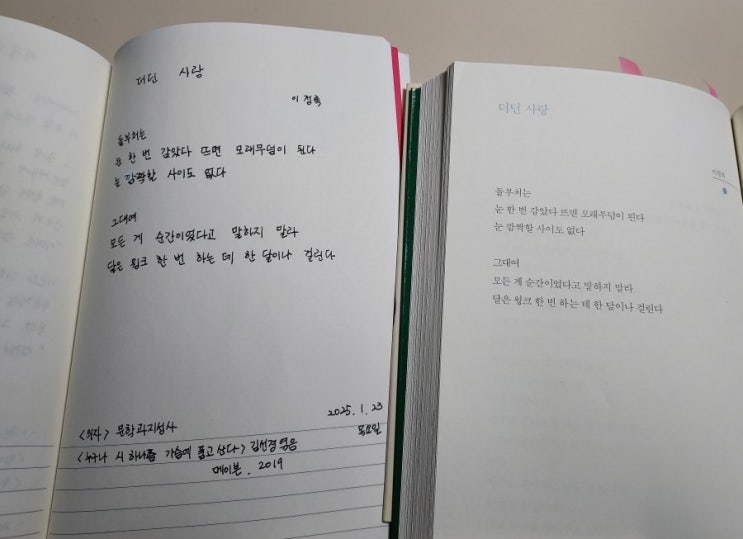 더딘 사랑
이정록
돌부처는
눈 한 번 감았다 뜨면 모래무덤이 된다
눈 깜짝할 사이도 없다
그대여
모든 게 순간이었다고 말하지 말라
달은 윙크 한 번 하는 데 한 달이나 걸린다
2025. 1. 23
목요일
<의자> 문학과지성사
<누구나 시 하나쯤 가슴에 품고 산다> 김선경 엮음
메이븐. 2019
더딘 사랑
이정록
돌부처는
눈 한 번 감았다 뜨면 모래무덤이 된다
눈 깜짝할 사이도 없다
그대여
모든 게 순간이었다고 말하지 말라
달은 윙크 한 번 하는 데 한 달이나 걸린다